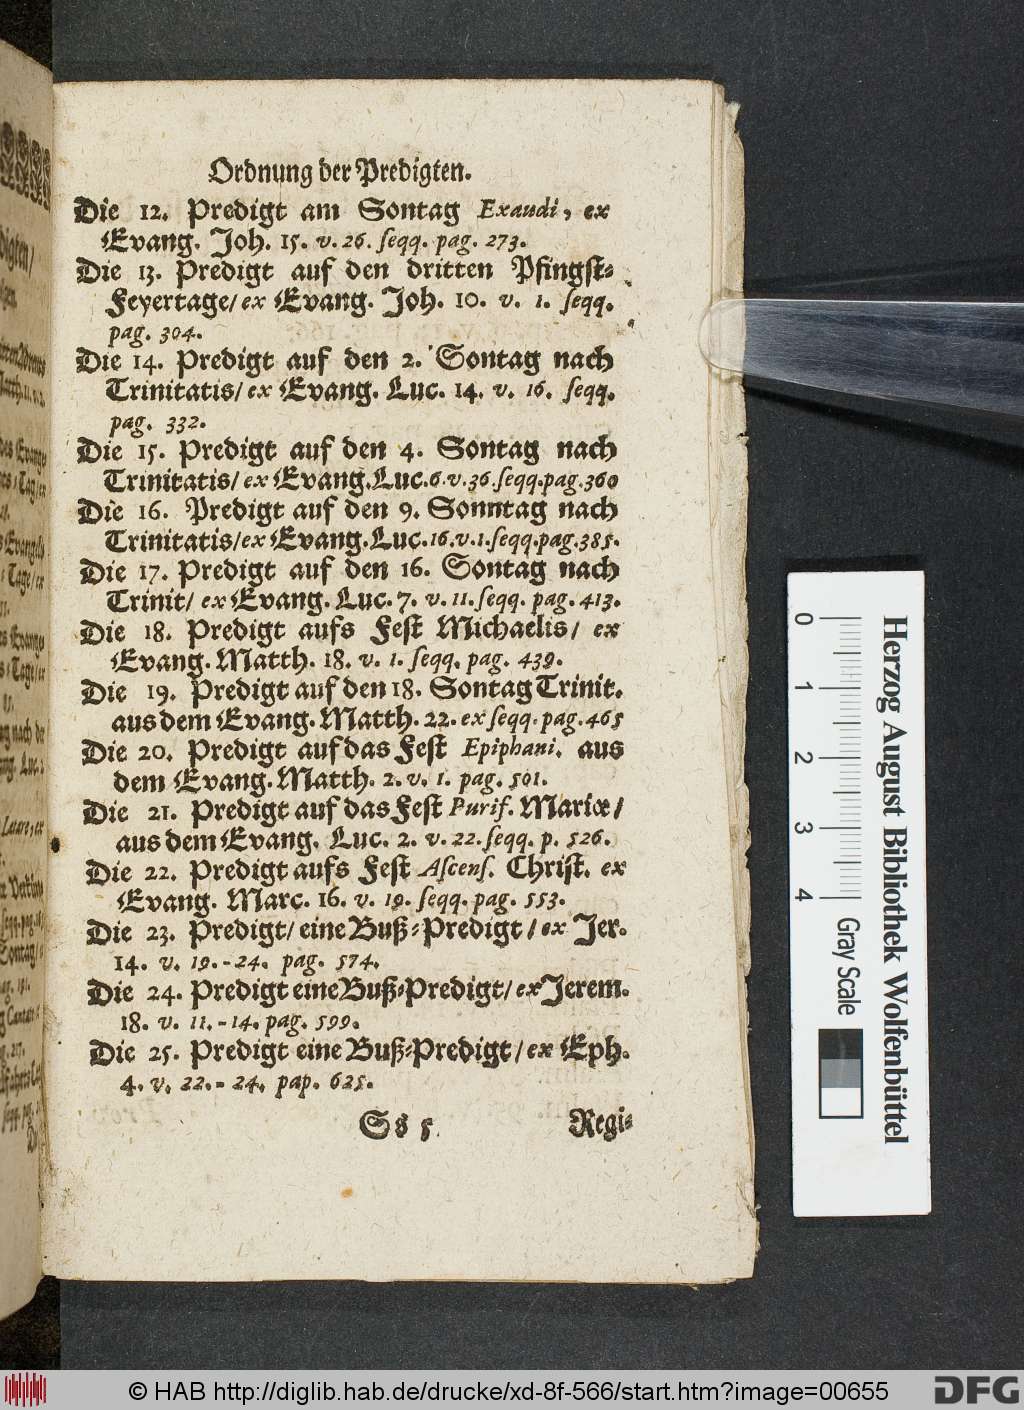 Ordnung der Predigten.
Die 12. Predigt am Sontag Exaudi, ex
Evang. Joh. 15. v. 26. ſeqq. pag. 273.
Die 13. Predigt auf den dritten Pfingſt⸗
Feyertage/ ex Evang. Joh. 10. v. 1. ſeqq.
pag. 304.
Die 14. Predigt auf den 2. Sontag nach
Trinitatis/ ex Evang. Luc. 14. v. 16. ſeqq.
pag. 332.
Die 15. Predigt auf den 4. Sontag nach
Trinitatis/ ex Evang. Luc. 6. v. 36. ſeqq. pag. 360
Die 16. Predigt auf den 9. Sonntag nach
Trinitatis/ ex Evang. Luc. 16. v. 1. ſeqq. pag. 385.
Die 17. Predigt auf den 16. Sontag nach
Trinit/ ex Evang. Luc. 7. v. 11. ſeqq. pag. 413.
Die 18. Predigt aufs Feſt Michaelis/ ex
Evang. Matth. 18. v. 1. ſeqq. pag. 439.
Die 19. Predigt auf den 18. Sontag Trinit.
aus dem Evang. Matth. 22. ex ſeqq. pag. 465
Die 20. Predigt auf das Feſt Epiphani. aus
dem Evang. Matth. 2. v. 1. pag. 501.
Die 21. Predigt auf das Feſt Purif. Mariæ/
aus dem Evang. Luc. 2. v. 22. ſeqq. p. 526.
Die 22. Predigt aufs Feſt Aſcenſ. Chriſt. ex
Evang. Marc. 16. v. 19. ſeqq. pag. 553.
Die 23. Predigt/ eine Buß⸗Predigt/ ex Jer.
14. v. 19.-24. pag. 574.
Die 24. Predigt eine Buß⸗Predigt/ ex Jerem.
18. v. 11.-14. pag. 599.
Die 25. Predigt eine Buß⸗Predigt/ ex Eph.
4. v. 22.-24. pap. 625.
Ss 5
Regi⸗
Herzog August Bibliothek Wolfenbüttel
0 1 2 3 4
Gray Scale
© HAB http://diglib.hab.de/drucke/xd-8f-566/start.htm?image=00655
DFG